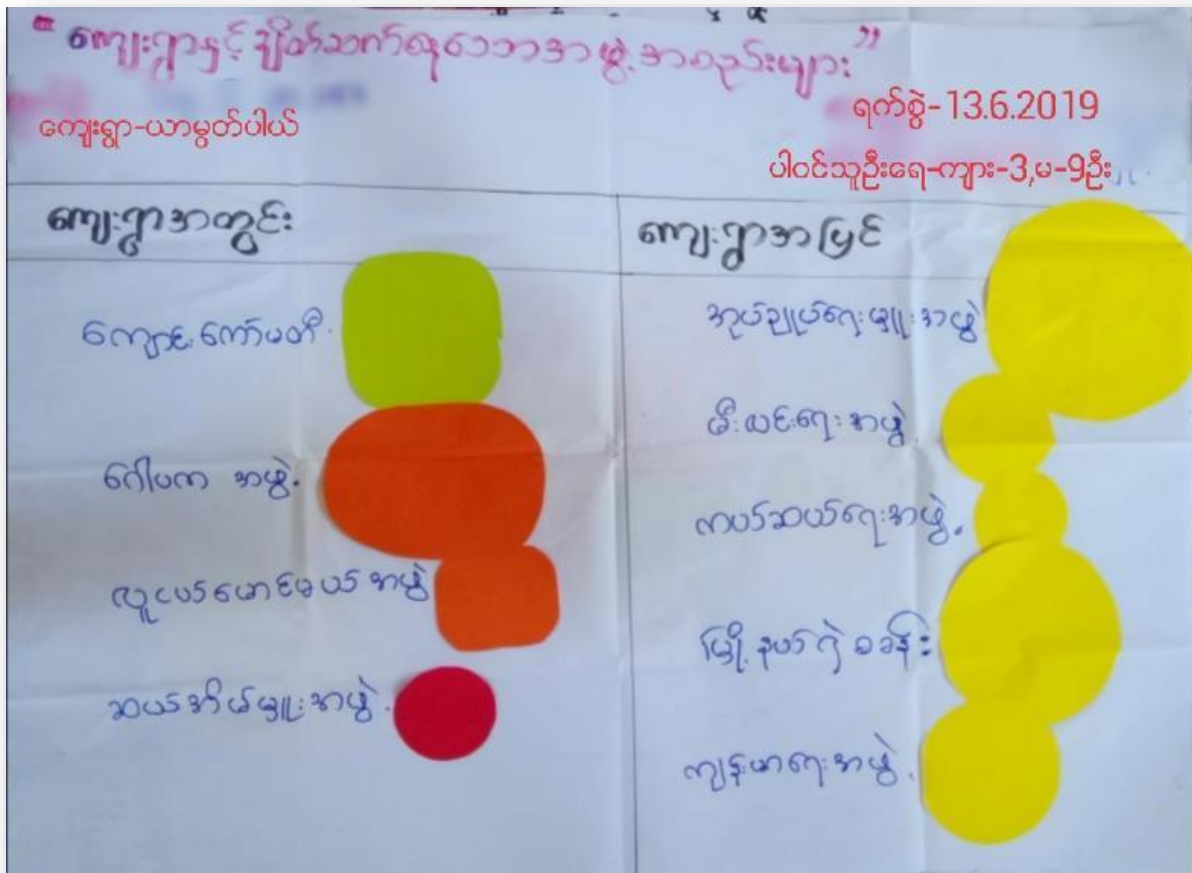 "ကျေးရွာနှင့်ချိတ်ဆက်ရသောအဖွဲ့အစည်းများ"
ကျေးရွာ-ယာမွတ်ပါယ်
ရက်စွဲ-13.6.2019
ပါဝင်သူဦးရေ-ကျား-3,မ-9ဦး
ကျေးရွာအတွင်း
ကျောင်းကော်မတီ
ဂေါပက အဖွဲ့.
လူငယ်မောင်မယ်အဖွဲ့
ဆယ်အိမ်မှူးအဖွဲ့.
ကျေးရွာအပြင်
အုပ်ချုပ်ရေးမှူးအဖွဲ့
မီးလင်းရေးအဖွဲ့
ကယ်ဆယ်ရေးအဖွဲ့.
မြို့နယ်ရဲစခန်း
ကျန်းမာရေးအဖွဲ့.